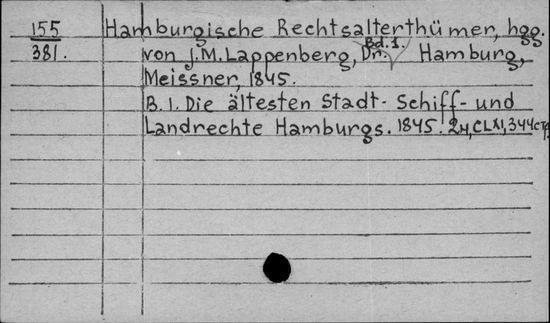 155 Hamburgische Rechtsalterthümer, hgg.
381. von J.M.Lappenberg, Dr. Bd.1. Hamburg,
Meissner, 1845.
B. I. Die ältesten Stadt- Schiff- und
Landrechte Hamburgs. 1845. 2н, CLXI, 344 стр